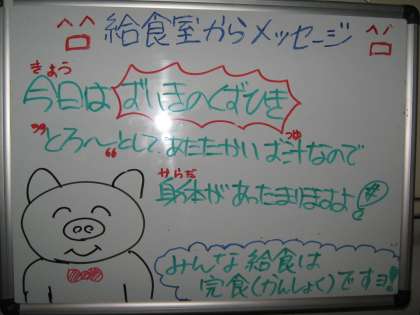 給食室からメッセージ
きょう
今日は ずいきのくずひき
"とろ〜"としてあたたかい お汁なので
つゆ
からだ
身体があったまりますよ!
みんな給食は
完食(かんしょく)ですョ!!